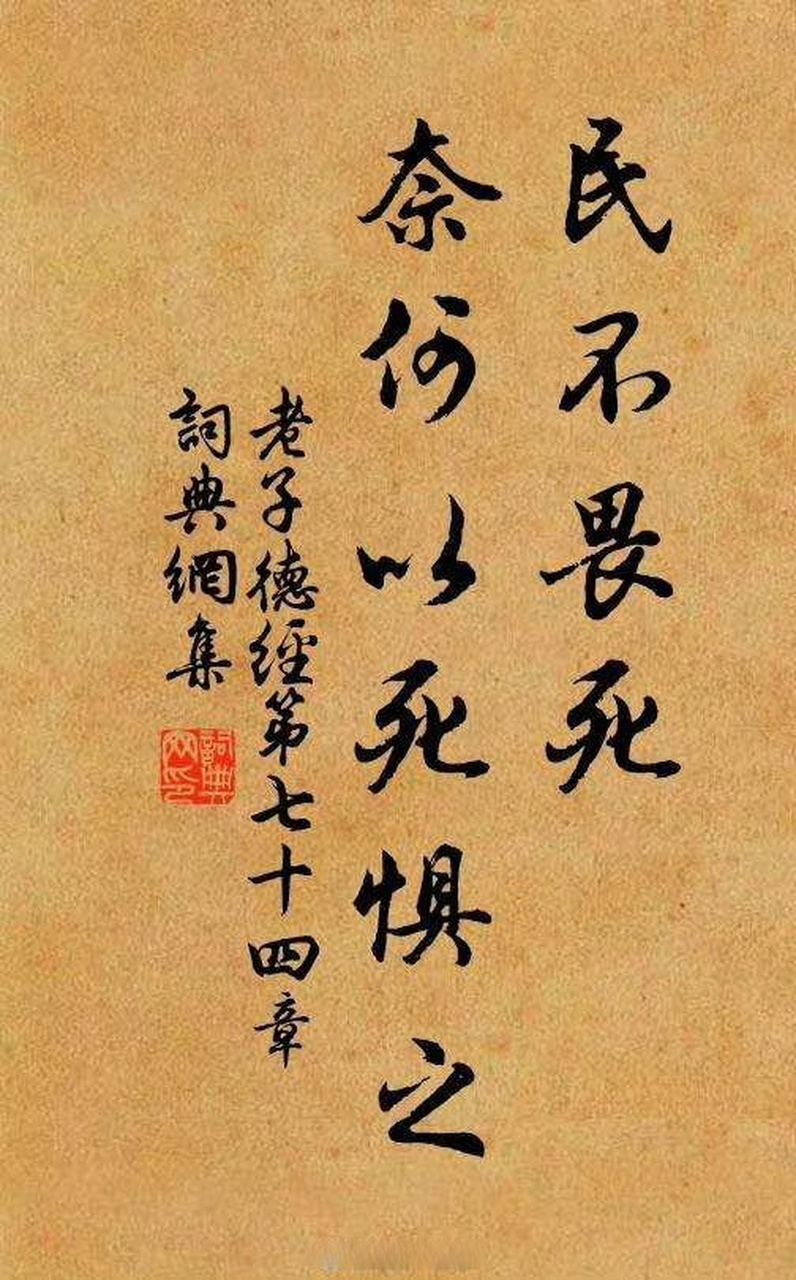 民不畏死
奈何以死惧之
老子德經第七十四章
詞典網集